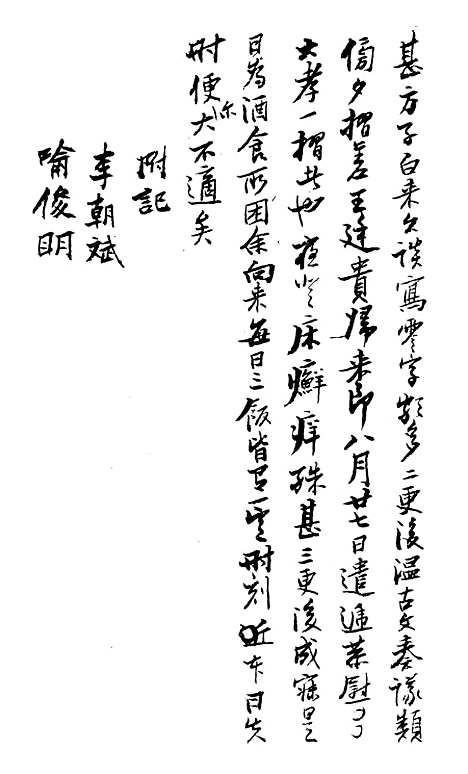 甚方子白来久談寫零字頗多二更後温古文奏議類
傍夕摺差王廷貴歸来即八月廿七日遣遞恭慰
大孝一摺者也夜登床癬痒殊甚三更後成寐是
日為酒食所困余向来每日三飯皆有一定時刻本日失
時便大不適矣
附記
李朝斌
喻俊明